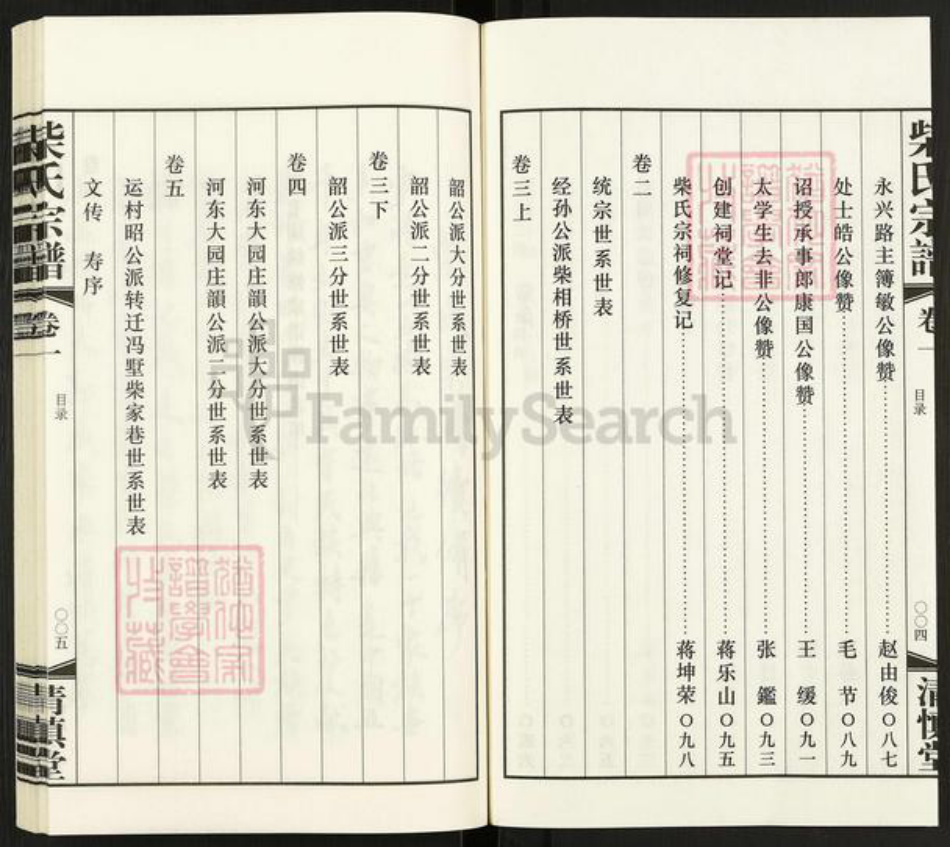 柴氏宗譜 卷一 目录 〇〇四 清慎堂
永兴路主簿敏公像赞……赵由俊〇八七
处士皓公像赞……毛 节〇八九
诏授承事郎康国公像赞……王 缓〇九一
太学生去非公像赞……张 鑑〇九三
创建祠堂记……蒋乐山〇九五
柴氏宗祠修复记……蒋坤荣〇九八
卷二
统宗世系世表
经孙公派柴相桥世系世表
卷三上
韶公派大分世系世表
韶公派二分世系世表
卷三下
韶公派三分世系世表
卷四
河东大园庄韻公派大分世系世表
河东大园庄韻公派二分世系世表
卷五
运村昭公派转迁冯墅柴家巷世系世表
文传 寿序
柴氏宗譜 卷一 目录 〇〇五 清慎堂
FamilySearch